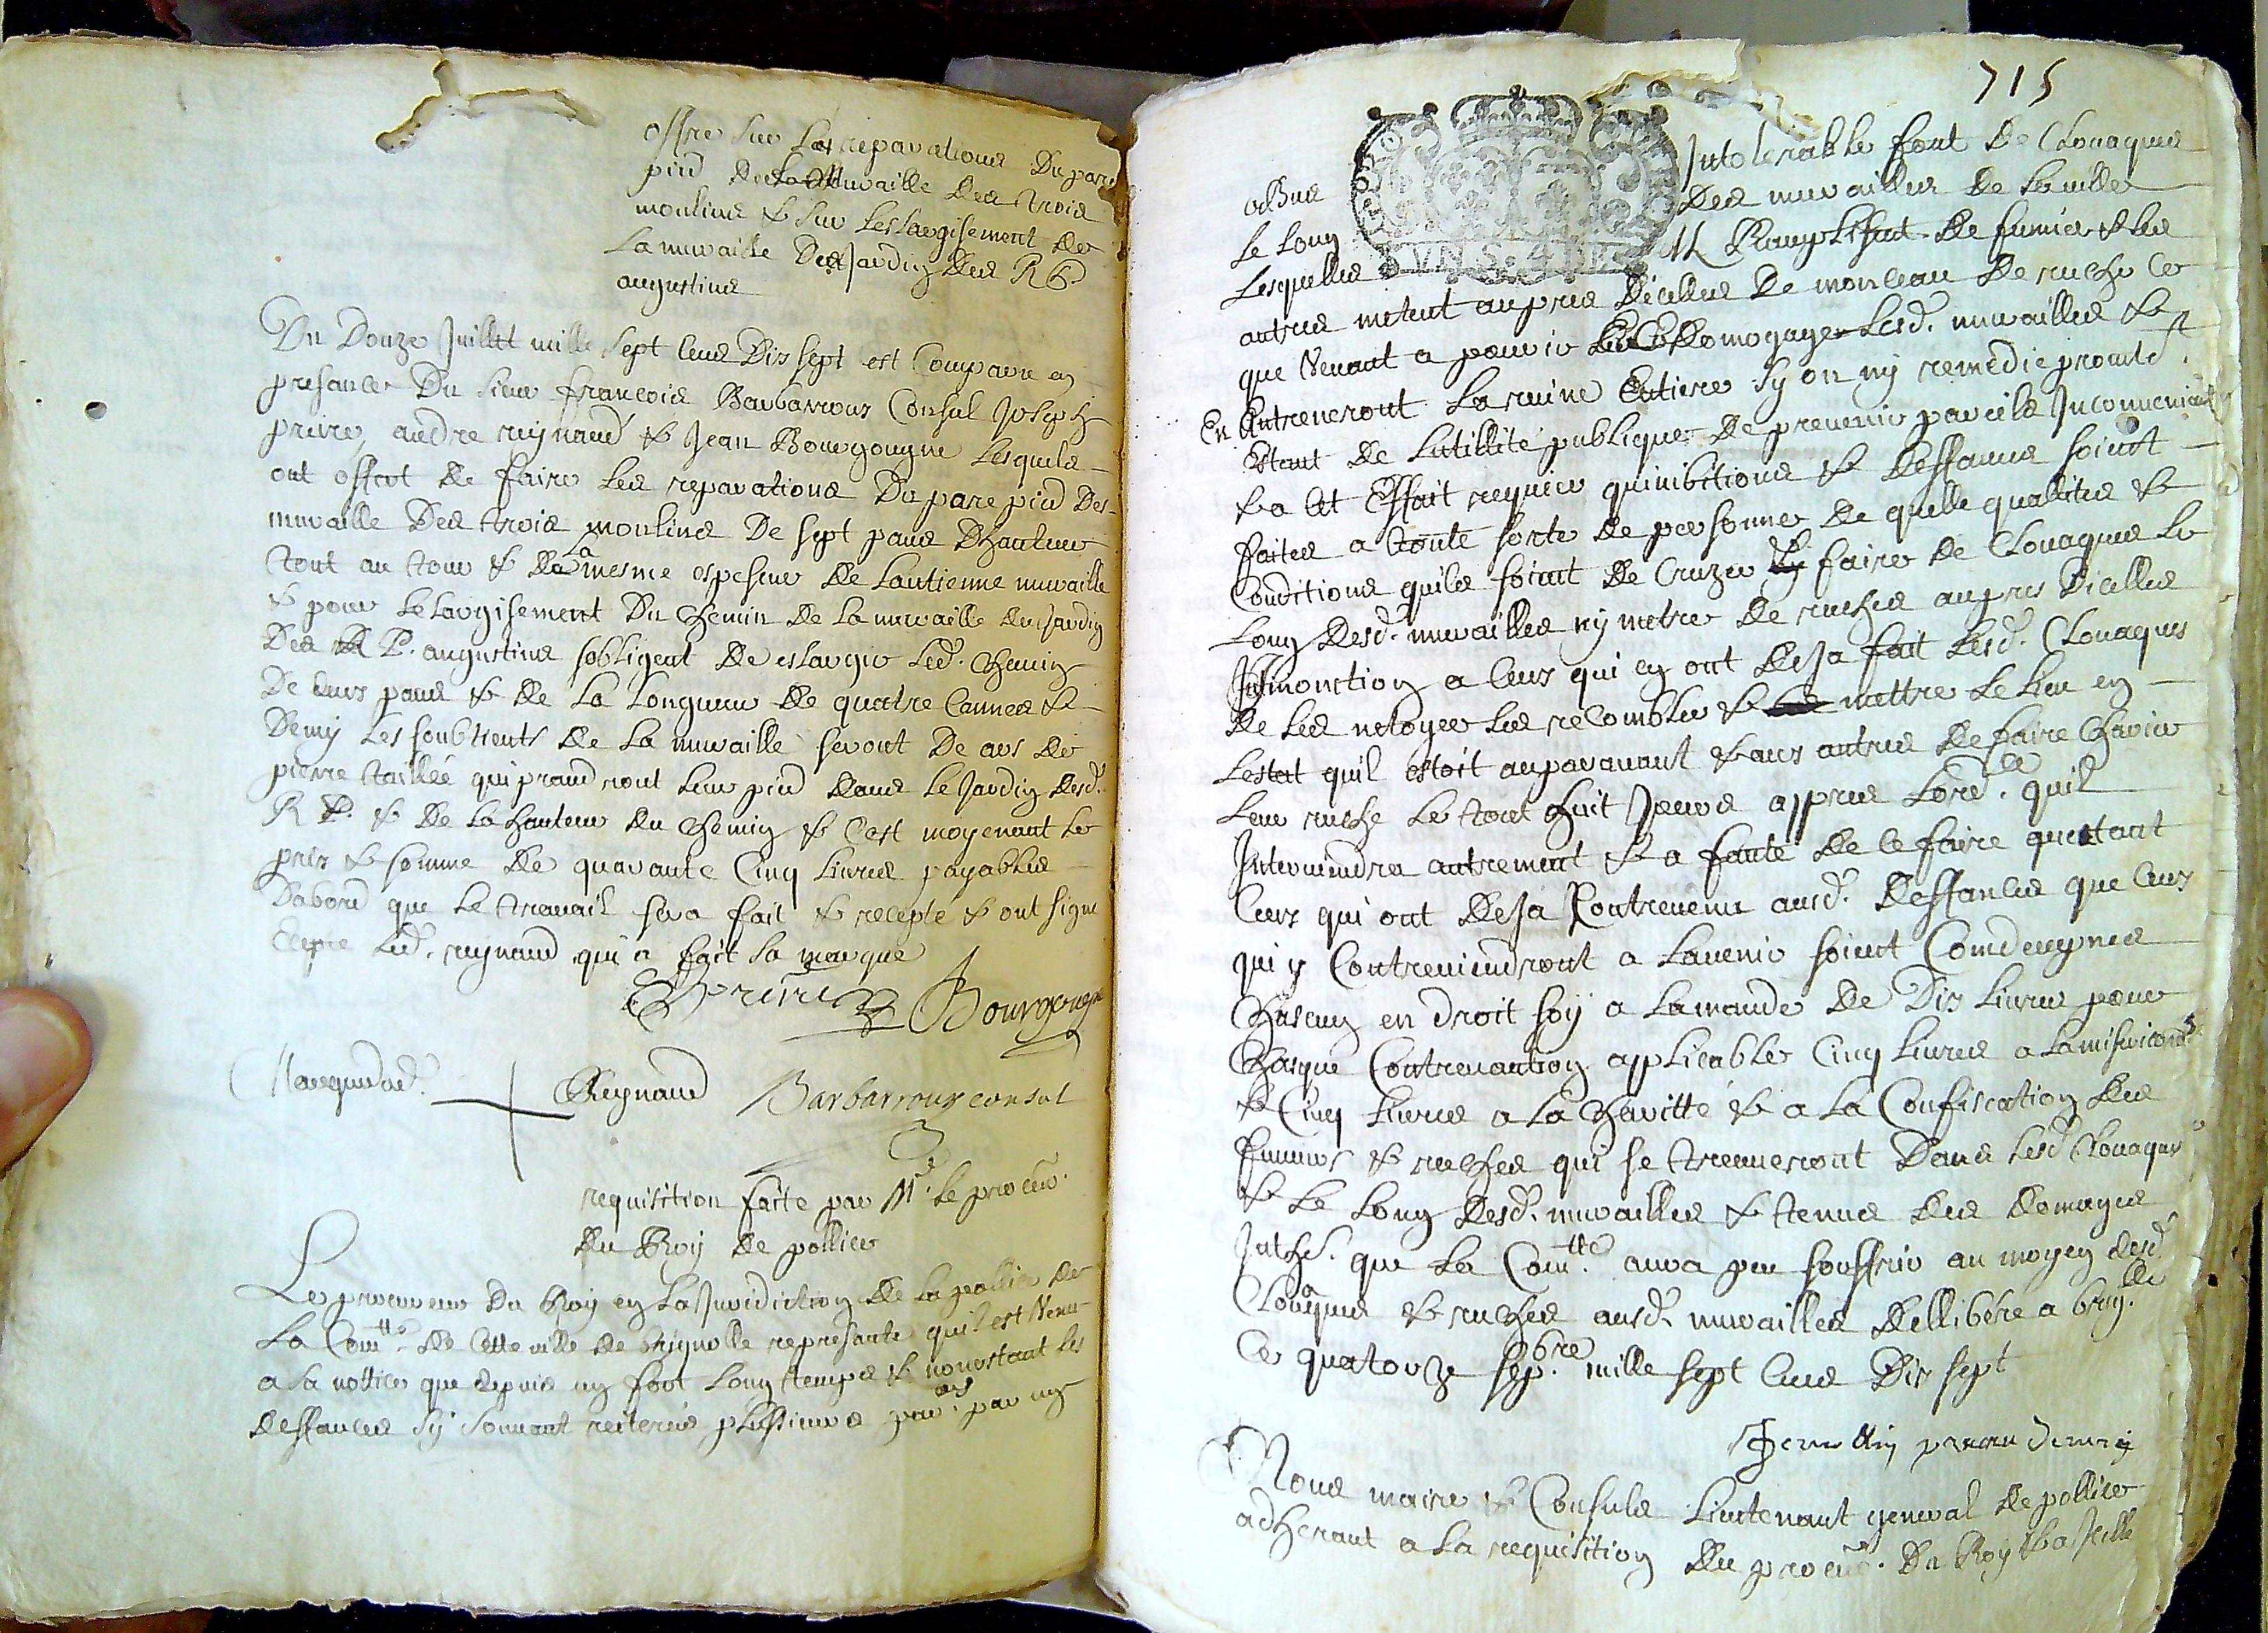 offre sur les reparations du pare
pied de la muraille des trois
moulins & sur leslargisement de
la muraille des Jardin des R P
augustins
Du Douze Juillet mille sept cens Dix sept est Comparu en
presance Du sieur françois Barbarroux Consul Joseph
privre, andre reynaud & Jean Bourgougne lesquels
ont offert de faire les reparations Du pare pied Des
muraille Des trois moulins De sept pans Dhauteur
tout au tour & de la mesme espeseur de Lantienne muraille
& pour Leslargisement Du chemin de la muraille du Jardin
Des R P. augustins sobligent de eslargir led. chemin
De deux pans & de La Longueur de quatre Cannes &
Demy Les soubtients de La muraille seront De arc de
pierre taillée qui prandront leur pied dans le Jardin desd.
R P. & de la hauteur du chemin & c'est moyenant le
prix & somme de quarante Cinq livres payables
Dabord que le travail sera fait & recepté & ont signé
Excepté led. reynaud qui a fait sa marque
Privre Bourgougne
Marque dud. + Reynaud Barbarroux consul
requisition faite par Mr. le procur.
du Roy de pollice
Le procureur Du Roy en la Juridiction de la pollice de
la Comtté. de cette ville de brignolle represante quil est venu
a sa nottice que depuis un fort long temps & nonostant les
deffances sy souvant reiterées plusieurs par.ers par un
715
abus
Intolerable font de Clouaques
le long
des murailles de la ville
VN S. 4 DE
Lesquelles
Il Ramplisent de fumier & les
autres metent aupres Dicelles De monceau De ruche ce
que venant a pourrir Endomogager Lesd. murailles &
En Entreneront La ruine Entiere sy on ny remedie promtt.
Etant de Lutillité publique De prevenir pareils Inconvenients
& a cet Effait requier quinibitions & deffances soient
faites a toute sorte de personnes de quelle qualités &
Conditions quils soient de Cruzer faire de Clouaques le
Long Desd. murailles ny metre de ruches aupres Dicelles
Injonction a ceux qui en ont deja fait Lesd. Clouaques
de les netoyer les recombler & mettre le lieu en
Lestat quil estoit auparavant & aux autres de faire charier
leur ruche le tout huit Jours appres Lord.ce quil
Interviendra autrement & a faute de ce faire questant
Ceux qui ont deja Contrevenu ausd. deffances que ceux
qui y Contreviendront a Lavenir soient Comdempnes
Chascun en droit soy a Lamande de Dix livres pour
Chasque Contrevantion applicables Cinq livres a La misericorde
& Cinq livres a La charitté & a La Confiscation des
fumiers & ruches qui se treuveront Dans Lesd Clouaques
& le Long desd. murailles & tenus des domages
Inthes. que la Comtte. aura peu souffrir au moyen desd.
Clouaques & ruches ausd. murailles dellibéré a brig.lle
Ce quatorze sep.bre mille sept cens Dix sept
Nous maire & Consuls Lieutenant general de pollice
adherant a la requisition du procur. Du Roy